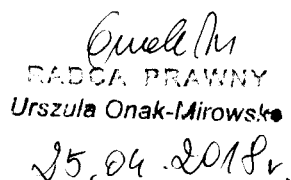 RADCA PRAWNY
Urszula Onak-Mirowska
25.04.2018r.